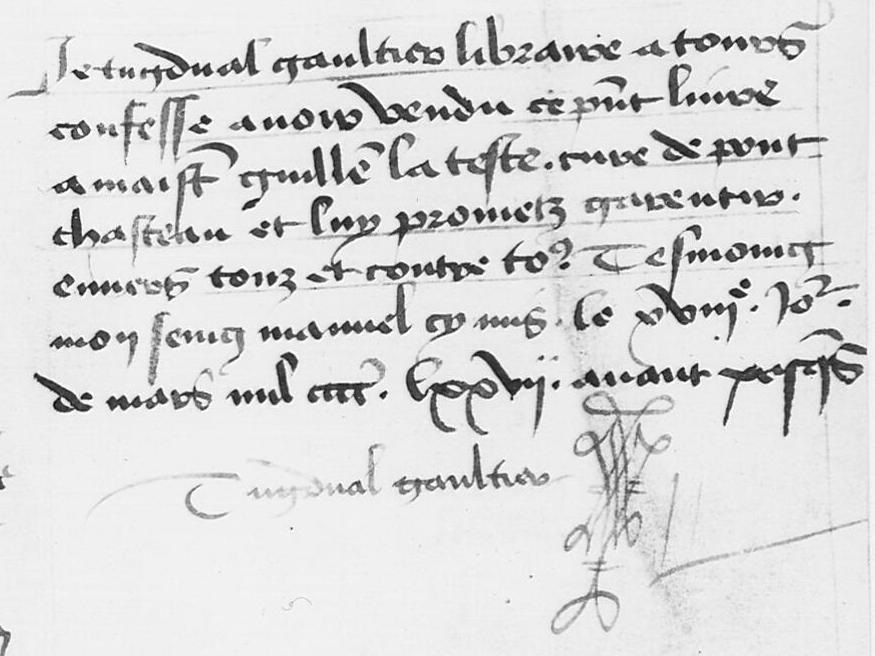 Je tugdual gaultier libraire a tours
confesse avoir vendu ce pn̄t livre
a maist̄ guillē la teste . cure de pont
chasteau et luy prometz garentir .
envers touz et contre to⁹ Tesmoing
mon seing manuel cy mis . le xviiiᵉ . Joʳ .
de mars mil cccc . lxxvii . avant pasq̄s
Tugdual gaultier